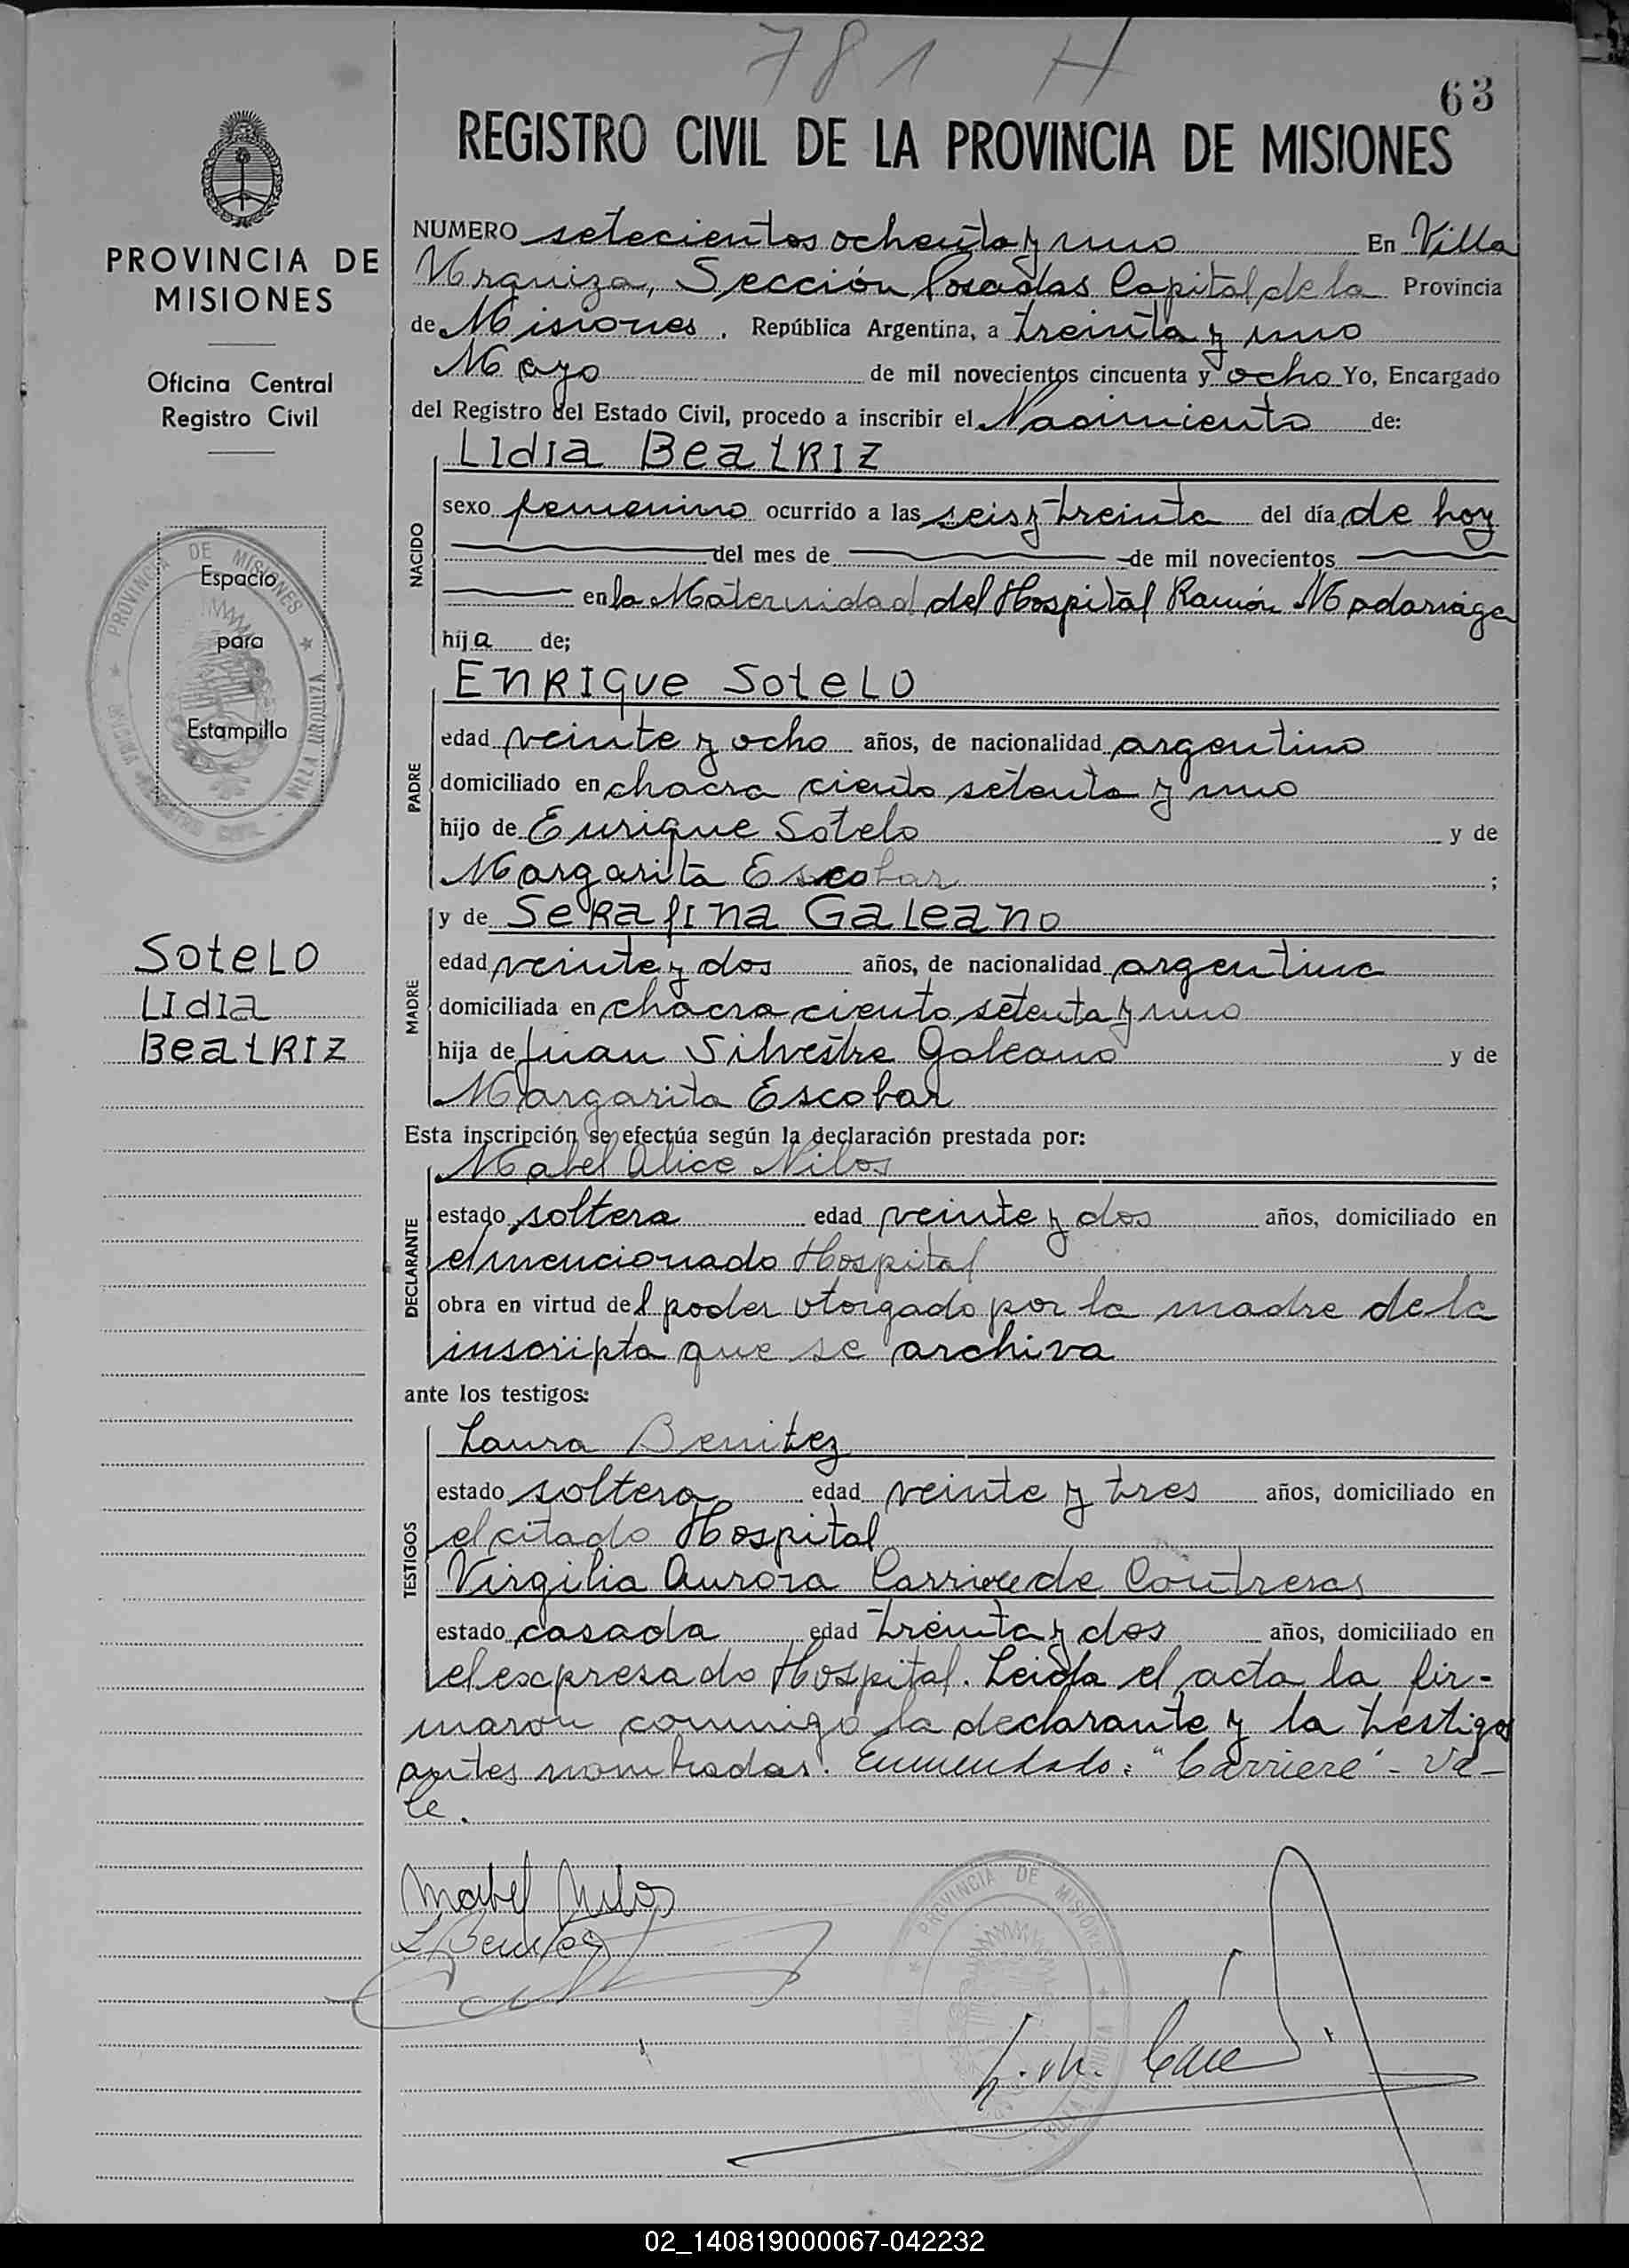 781 H
63
REGISTRO CIVIL DE LA PROVINCIA DE MISIONES
PROVINCIA DE
MISIONES
Oficina Central
Registro Civil
PROVINCIA DE MISIONES
VILLA URQUIZA
Espacio
para
Estampilla
Sotelo
Lidia
Beatriz
NUMERO setecientos ochenta y uno En Villa
Urquiza, Sección Posadas Capital de la Provincia
de Misiones. República Argentina, a treinta y uno
Mayo de mil novecientos cincuenta y ocho Yo, Encargado
del Registro del Estado Civil, procedo a inscribir el Nacimiento de:
NACIDO
Lidia Beatriz
sexo femenino ocurrido a las seis y treinta del día de hoy
del mes de de mil novecientos
en la Maternidad del Hospital Ramón Madariaga
hija de;
PADRE
Enrique Sotelo
edad veinte y ocho años, de nacionalidad argentino
domiciliado en chacra ciento setenta y uno
hijo de Enrique Sotelo y de
Margarita Escobar ;
MADRE
y de Serafina Galeano
edad veinte y dos años, de nacionalidad argentina
domiciliada en chacra ciento setenta y uno
hija de Juan Silvestre Galeano y de
Margarita Escobar
Esta inscripción se efectúa según la declaración prestada por:
DECLARANTE
Mabel Alice Nilos
estado soltera edad veinte y dos años, domiciliado en
el mencionado Hospital
obra en virtud del poder otorgado por la madre de la
inscripta que se archiva
ante los testigos:
TESTIGOS
Laura Benitez
estado soltera edad veinte y tres años, domiciliado en
el citado Hospital
Virgilia Aurora Carriere de Contreras
estado casada edad treinta y dos años, domiciliado en
el expresado Hospital. Leida el acta la fir-
maron conmigo la declarante y la testigos
antes nombradas. Enmendado: "Carriere" - Va-
le.
Mabel Nilos
L Benitez
PROVINCIA DE MISIONES
02_140819000067-042232